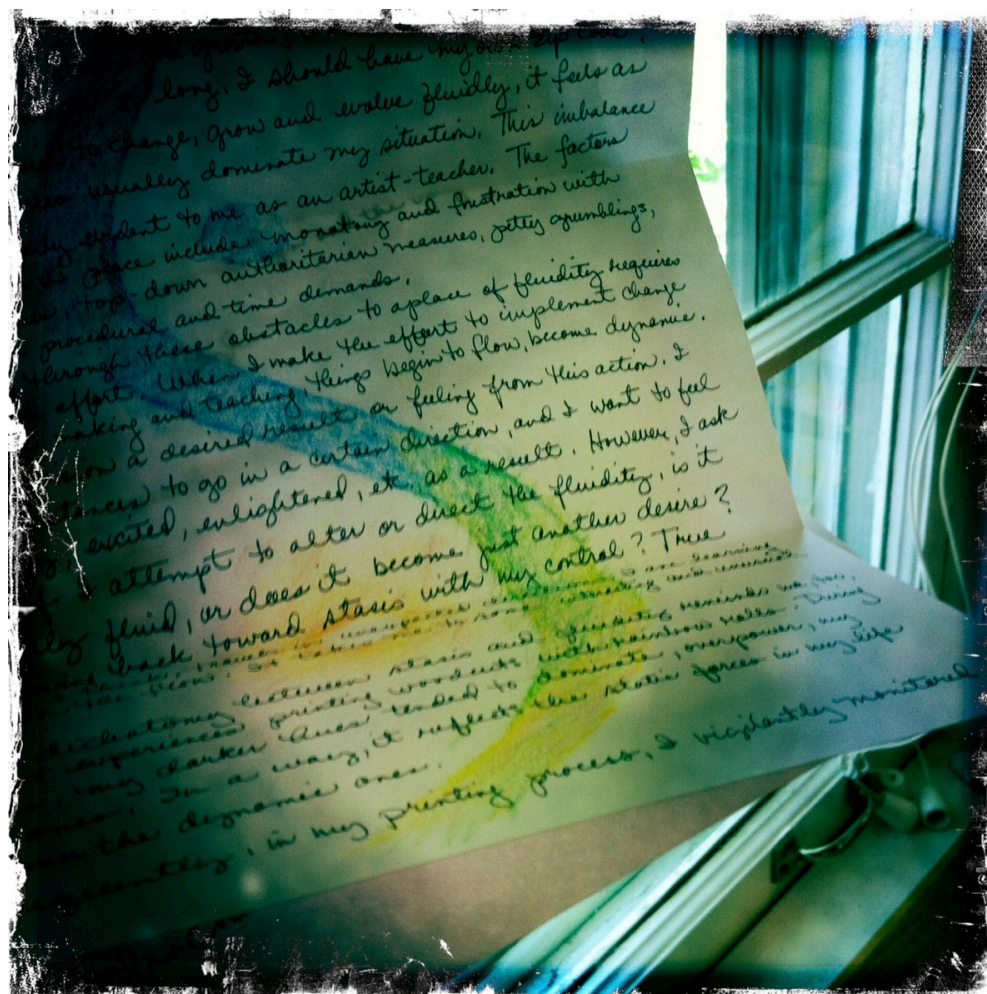 growth,
long, I should have my own zip code,
to change, grow and evolve fluidly, it feels as
usually dominate my situation. This imbalance
evident to me as an artist-teacher. The factors
place include monotony and frustration with
top-down authoritarian measures, petty grumblings,
procedural and time demands.
through these obstacles to a place of fluidity requires
effort. When I make the effort to implement change
making and teaching, things begin to flow, become dynamic.
a desired result or feeling from this action. I
to go in a certain direction, and I want to feel
excited, enlightened, etc. as a result. However, I ask
attempt to alter or direct the fluidity, is it
fluid, or does it become just another desire?
back toward stasis with my control? True
are learning
flow, interesting and
dichotomy between stasis and fluidity reminds me, too,
experiences printing woodcuts with rainbow rolls. During
my darker hues tended to dominate, overpower, my
In a way, it reflects the static forces in my life
the dynamic ones.
in my printing process, I vigilantly monitored